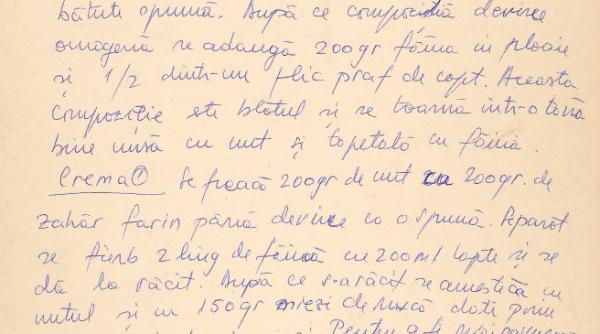 bătute spumă. După ce compoziția devine
omogenă se adaugă 200gr făina in ploaie
și 1/2 dintr-un plic praf de copt. Aceasta
compoziție este blatul și se toarnă într-o tavă
bine unsă cu unt și tapetată cu făina.
Crema 1 Se freacă 200gr de unt cu 200gr. de
zahăr farin până devine ca o spumă. Separat
se fierb 2 ling de făină cu 200ml lapte și se
dă la răcit. După ce s-a răcit se amestică cu
untul și cu 150gr miezi de nucă date prin
Pentru a fi